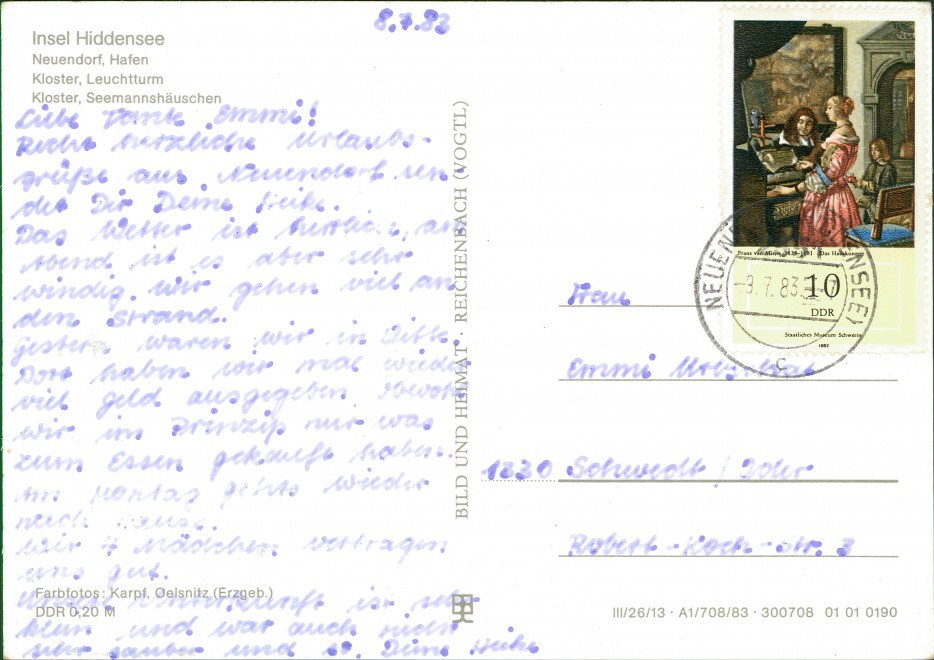 8.7.83
Insel Hiddensee
Neuendorf, Hafen
Kloster, Leuchtturm
Kloster, Seemannshäuschen
Liebe Tante Emmi!
Recht herzliche Urlaubs-
grüße aus Neuendorf sen
det Dir Deine Heike.
Das Wetter ist herrlich, am
Abend ist es aber sehr
windig. Wir gehen viel an
den Strand.
Gestern waren wir in
Dort haben wir mal wieder
viel Geld ausgegeben obwohl
wir im Prinzip nur was
zum Essen gekauft haben.
Am Montag gehts wieder
nach Hause.
Wir 4 Mädchen vertragen
uns gut.
Unsere Unterkunft ist sehr
klein und war auch nicht
sehr sauber und so. Deine Heike
Farbfotos: Karpf, Oelsnitz (Erzgeb.)
DDR 0,20 M
BILD UND HEIMAT · REICHENBACH (VOGTL)
Frans van Mieris 1635-1681 "Das
10
DDR
Staatliches Museum Schwerin
1982
-9.7.83
C
Frau
Emmi
1330 Schwedt / Oder
Robert-Koch-Str. 3
III/26/13 · A1/708/83 · 300708 01 01 0190